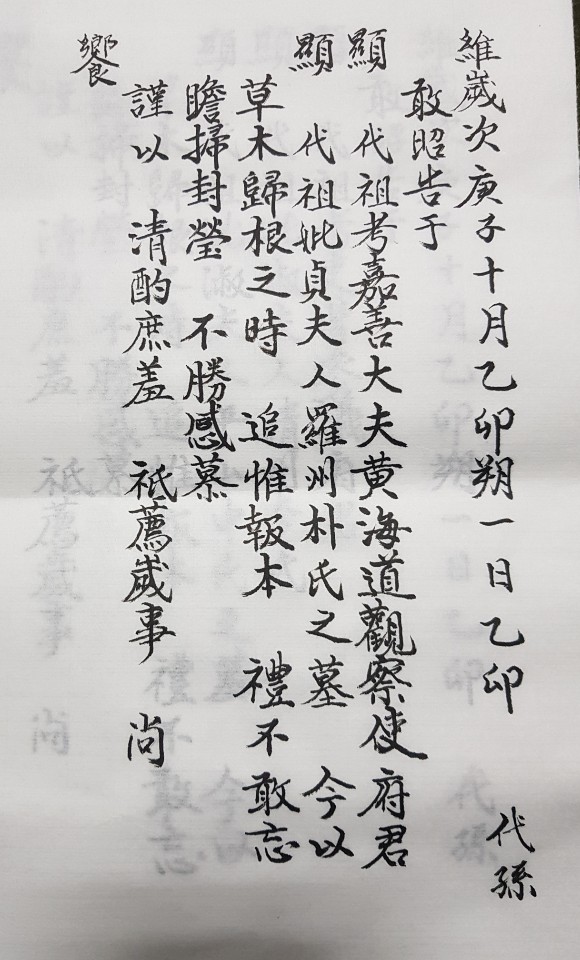 維歲次庚子十月乙卯朔一日乙卯 代孫
敢昭告于
顯 代祖考嘉善大夫黃海道觀察使府君
顯 代祖妣貞夫人羅州朴氏之墓 今以
草木歸根之時 追惟報本 禮不敢忘
瞻掃封瑩 不勝感慕
謹以 清酌庶羞 祗薦歲事 尚
饗